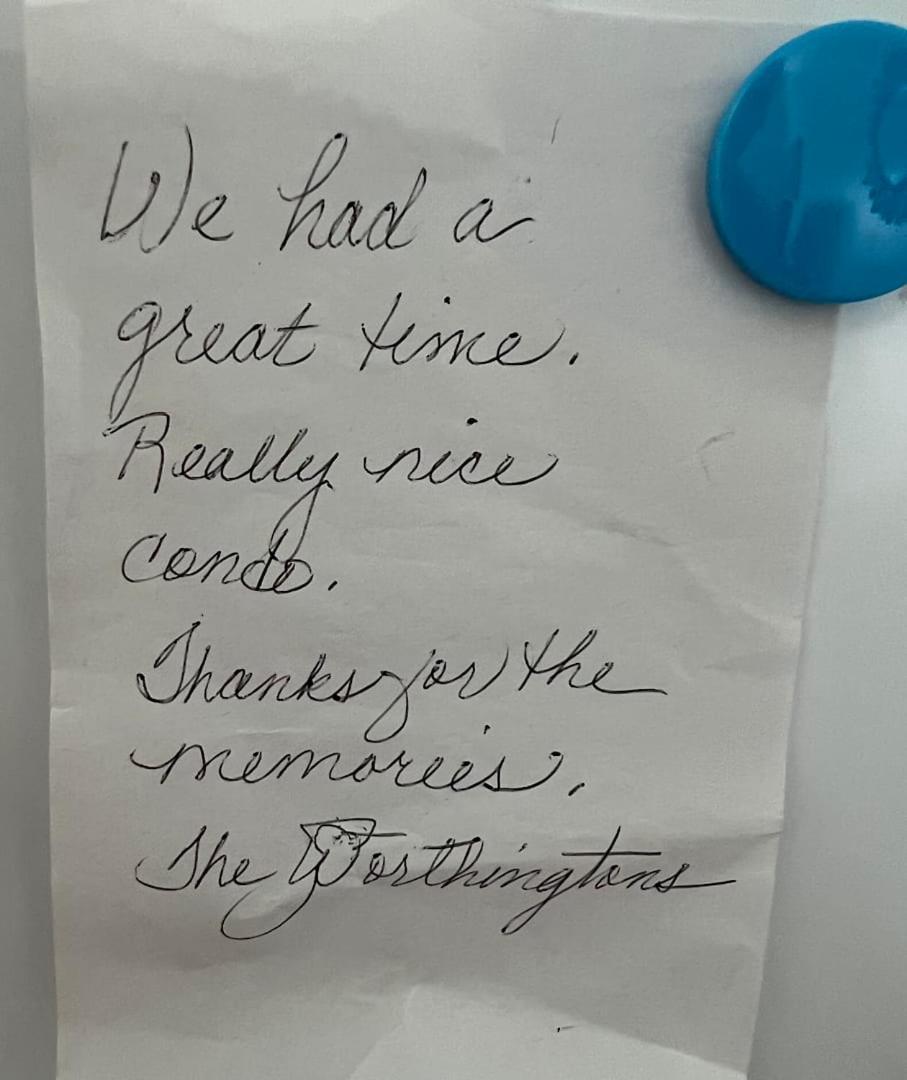 We had a
great time.
Really nice
condo.
Thanks for the
memories.
The Worthingtons